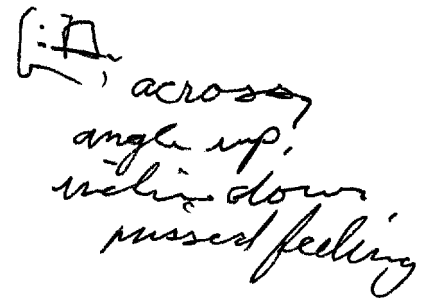 across,
angle up,
incline down
missed feeling